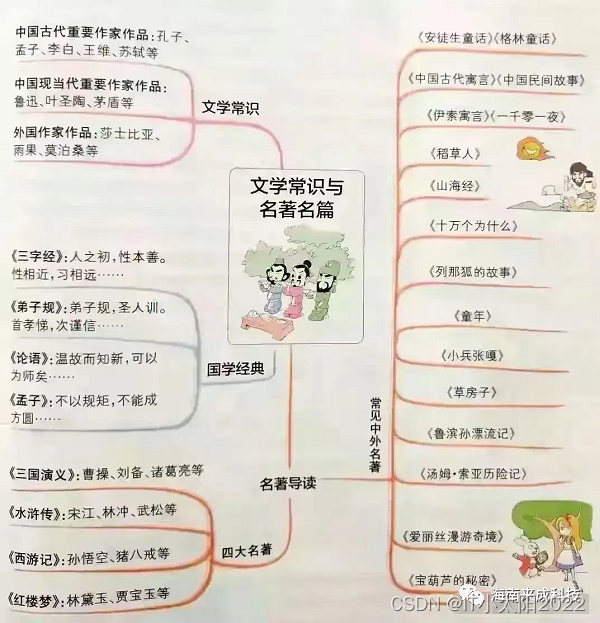 中国古代重要作家作品:孔子、
孟子、李白、王维、苏轼等
中国现当代重要作家作品:
鲁迅、叶圣陶、茅盾等
外国作家作品:莎士比亚、
雨果、莫泊桑等
文学常识
文学常识与
名著名篇
《三字经》:人之初,性本善。
性相近,习相远……
《弟子规》:弟子规,圣人训。
首孝悌,次谨信……
《论语》:温故而知新,可以
为师矣……
《孟子》:不以规矩,不能成
方圆……
国学经典
名著导读
《三国演义》:曹操、刘备、诸葛亮等
《水浒传》:宋江、林冲、武松等
《西游记》:孙悟空、猪八戒等
《红楼梦》:林黛玉、贾宝玉等
四大名著
常见中外名著
《安徒生童话》《格林童话》
《中国古代寓言》《中国民间故事》
《伊索寓言》《一千零一夜》
《稻草人》
《山海经》
《十万个为什么》
《列那狐的故事》
《童年》
《小兵张嘎》
《草房子》
《鲁滨孙漂流记》
《汤姆·索亚历险记》
《爱丽丝漫游奇境》
《宝葫芦的秘密》
海南来成科技